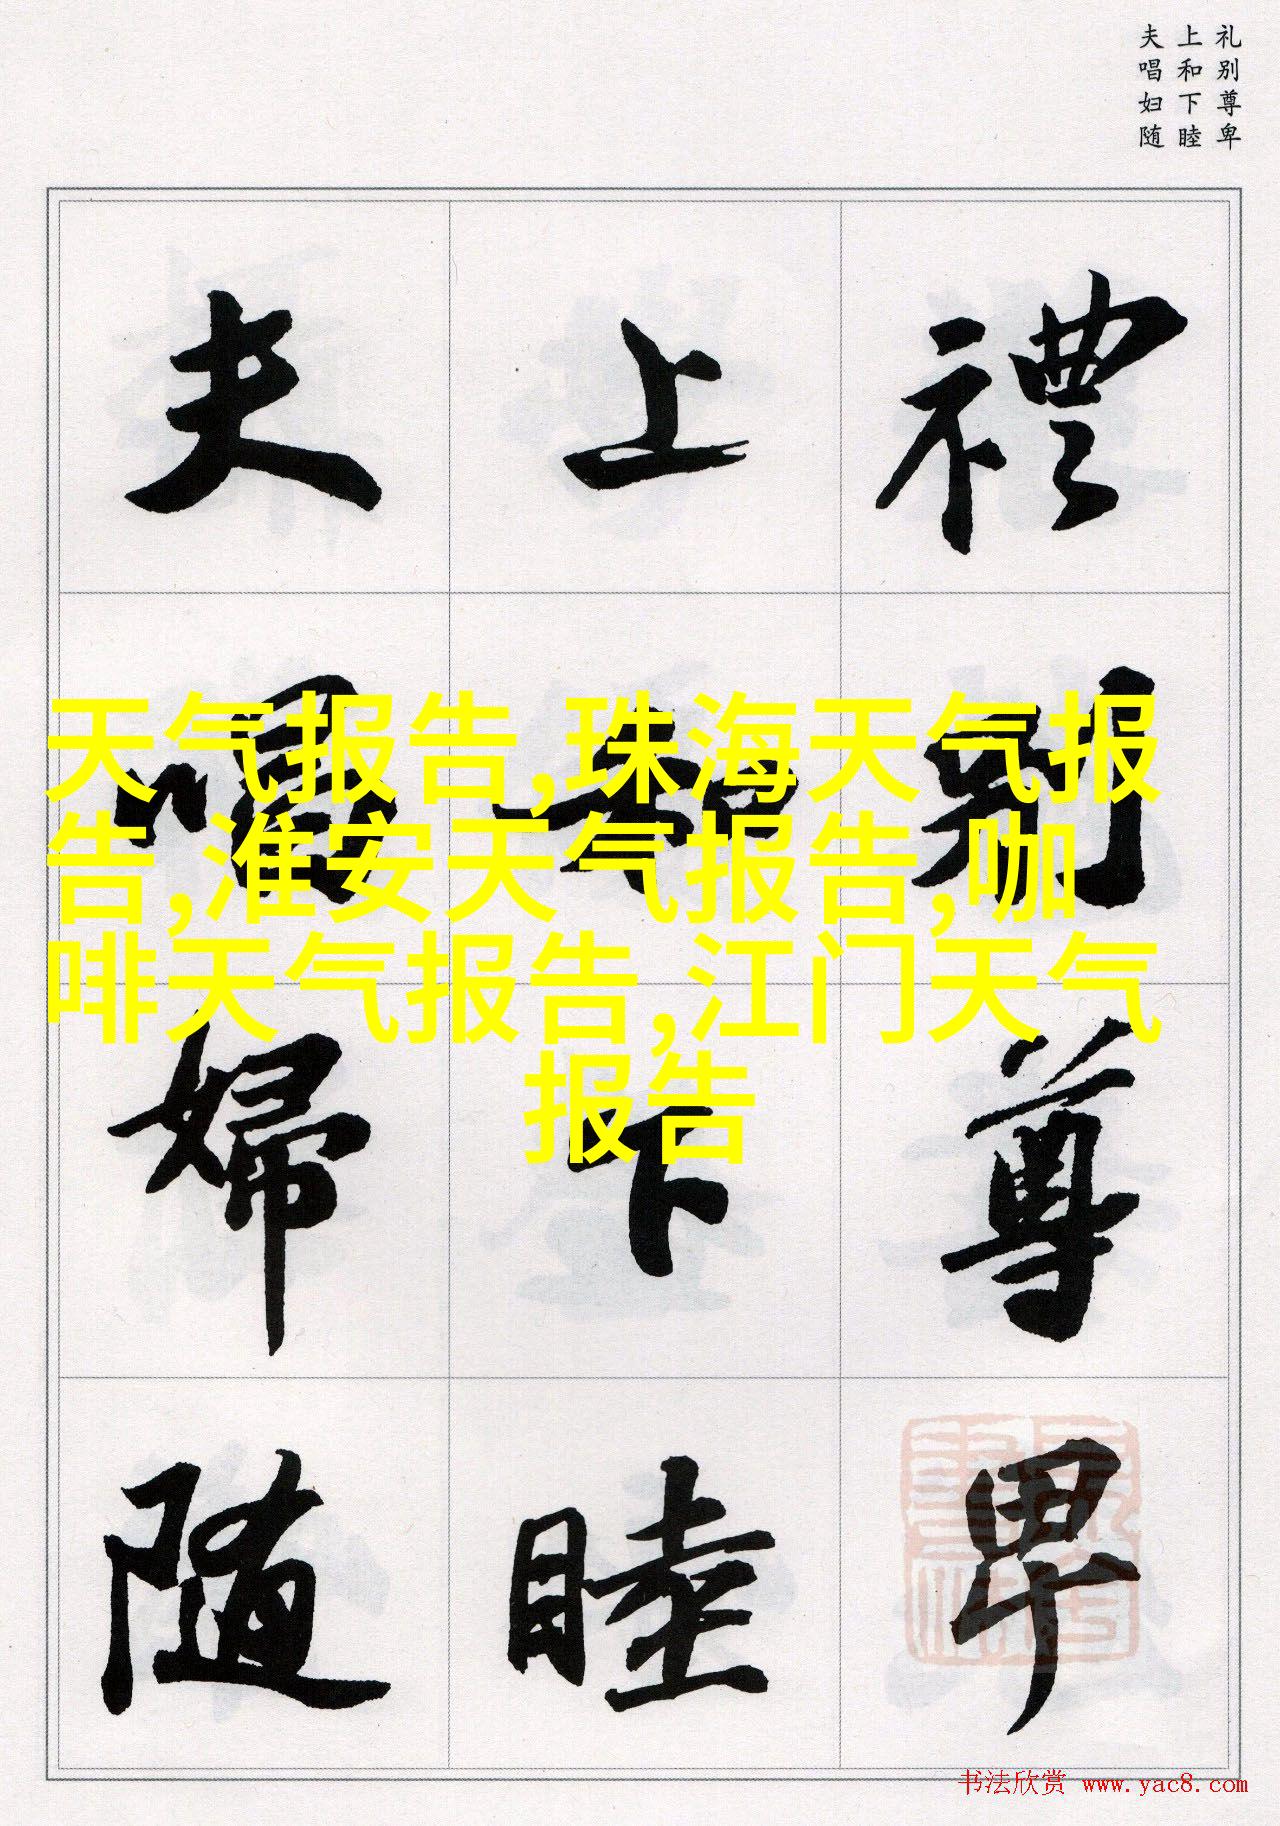 礼别尊卑
上和下睦
夫唱妇随
禮別尊卑
上和下睦
夫唱婦隨
天气报告,珠海天气报
告,淮安天气报告,咖
啡天气报告,江门天气
报告
书法欣赏 www.yac8.com